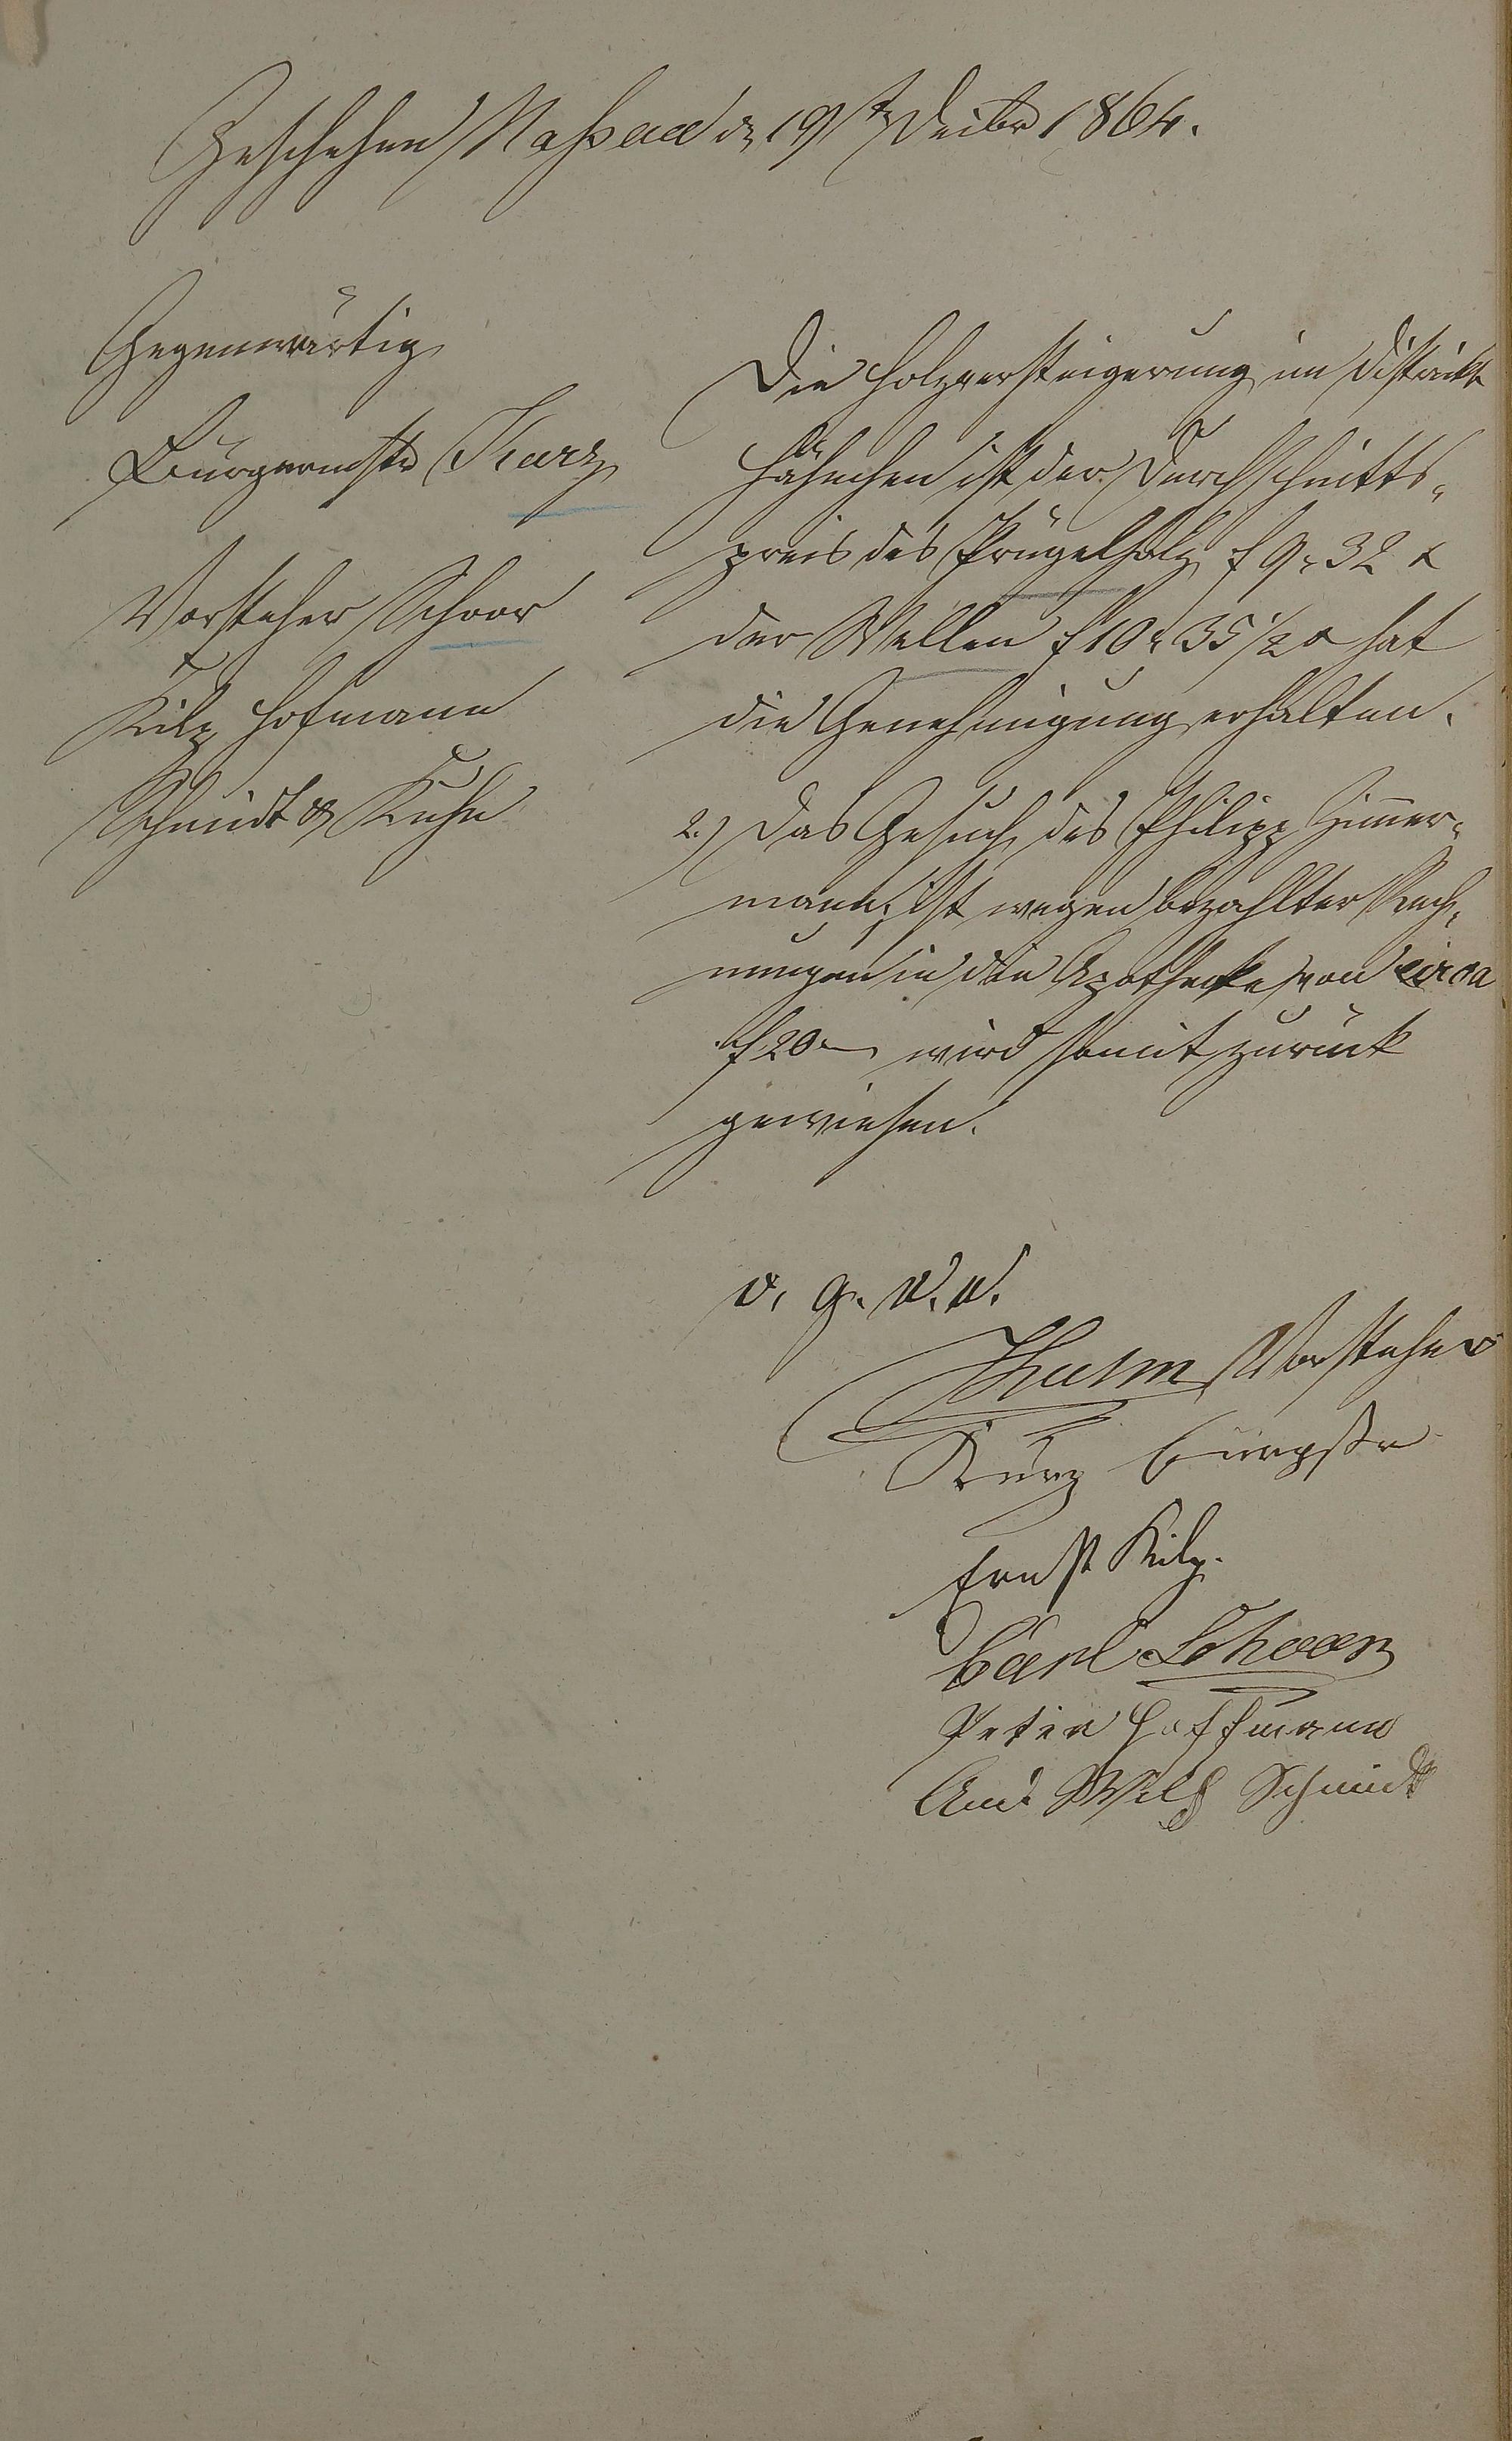 Geschehen Nassau d 19t Decbr 1864.
Gegenwärtig
Bürgermstr Kurz
Vorsteher Schoor
Kilp Hofmann
Schmidt & Kuhn
Die Holzversteigerung im Distrikt
Hähnchen ist der Durchschnitts-
preis des Prügelholz f 9. 32 x
der Wellen f 10. 35 1/2 x hat
die Genehmigung erhalten.
2.) Das Gesuch des Philipp Zimmer-
mann, ist wegen bezahlter Rech-
nungen in die Apotheke von circa
f 20 – wird somit zurück
gewiesen.
v. g. u. u.
Vorsteher
Kurz Bürgstr
Ernst Kilp.
Carl Schoor
Peter Hoffmann
And Wilh Schmidt